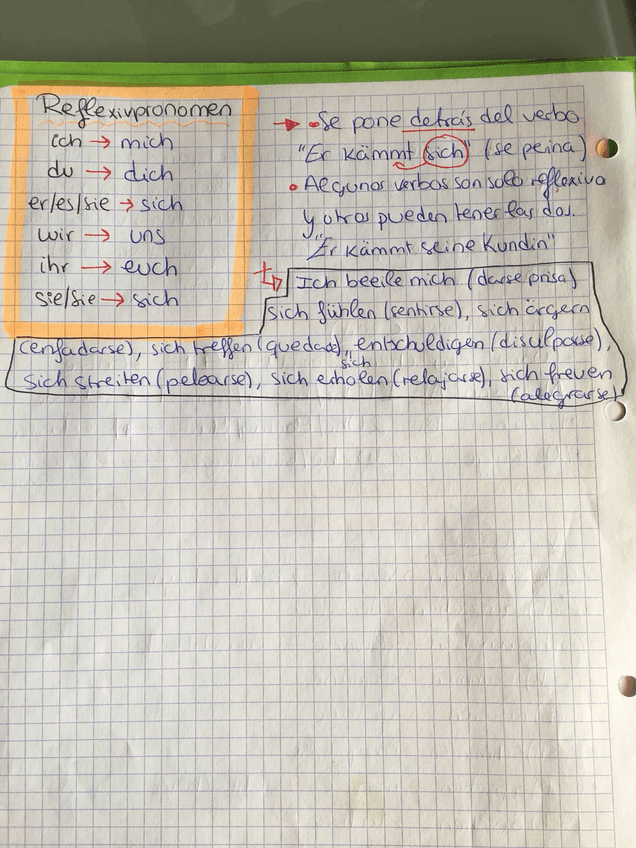 Reflexivpronomen
ich → mich
du → dich
er/es/sie → sich
wir → uns
ihr → euch
sie/Sie → sich
→ • Se pone detrás del verbo
"Er kämmt sich" (se peina)
• Algunos verbos son solo reflexivo
y otros pueden tener las dos.
"Er kämmt seine Kundin"
+ Ich beeile mich (darse prisa)
sich fühlen (sentirse), sich ärgern
(enfadarse), sich treffen (quedase), entschuldigen (disculparse),
sich
sich streiten (pelearse), sich erholen (relajarse), sich freuen
(alegrarse)